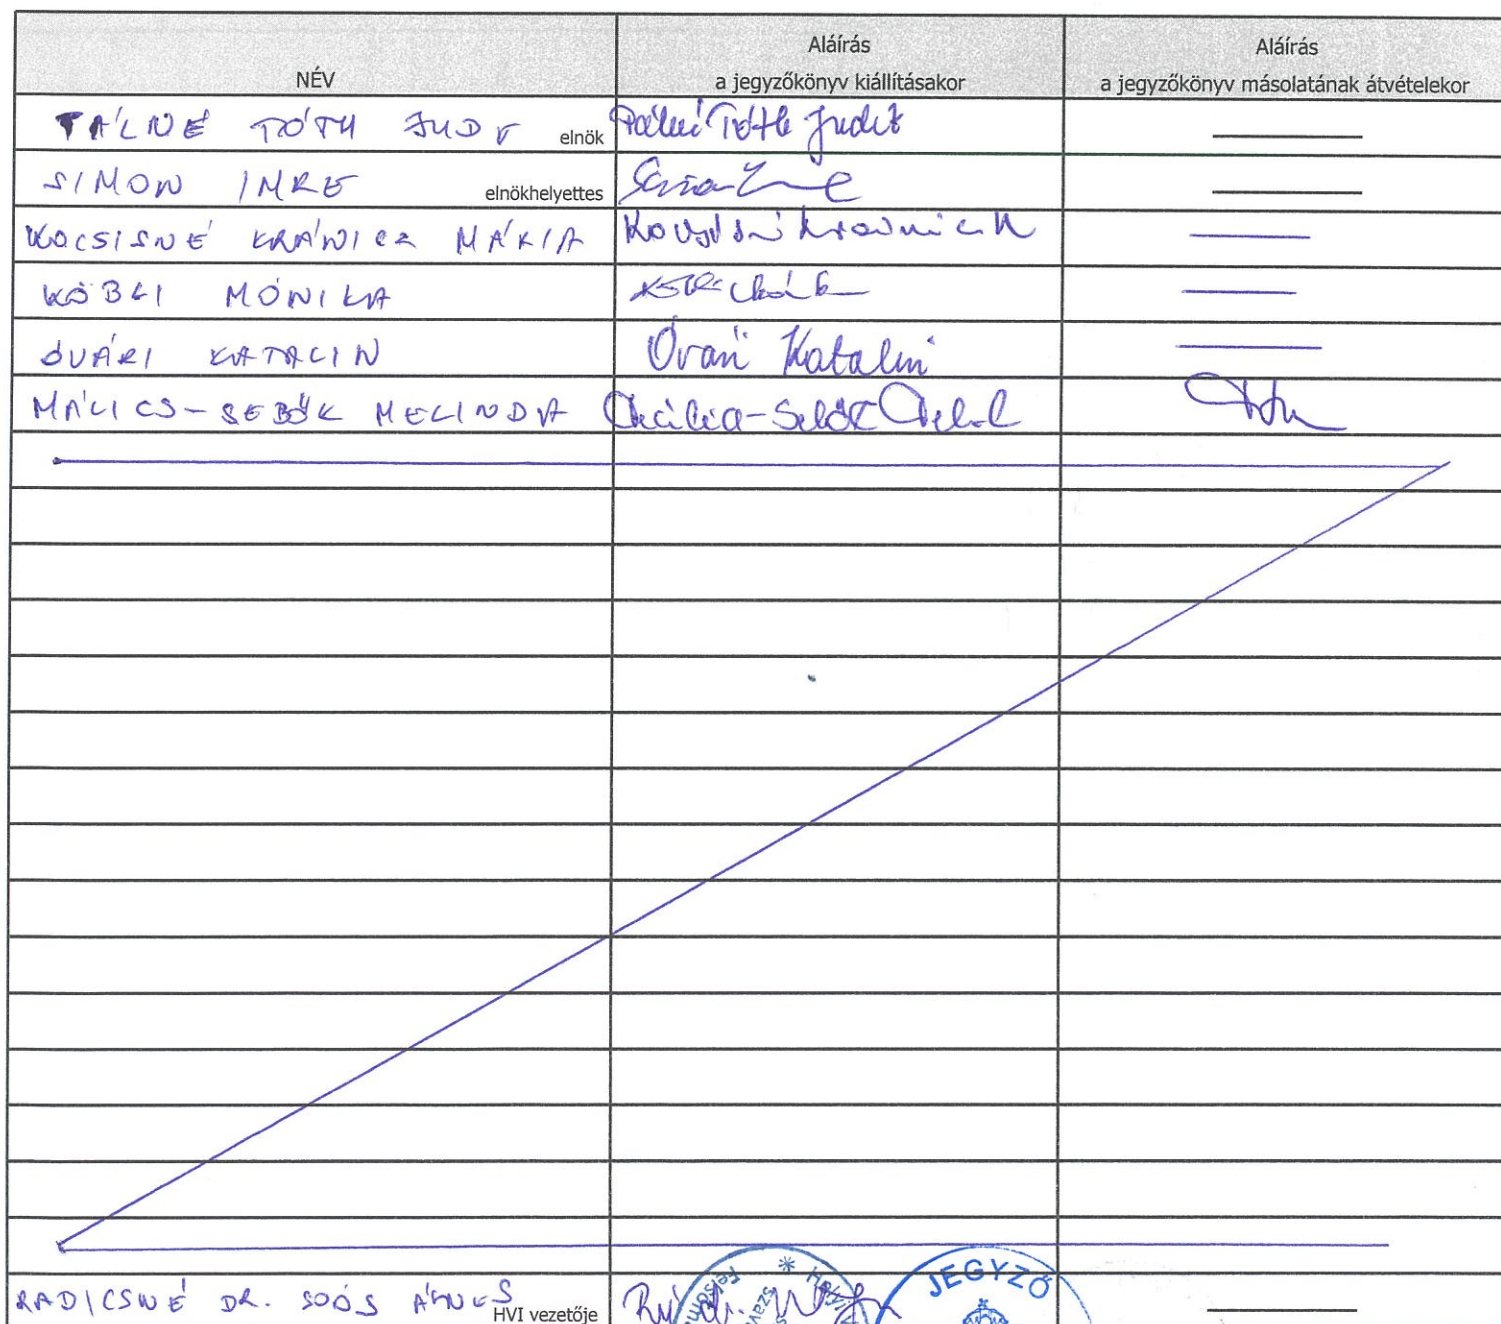 Aláírás Aláírás
NÉV a jegyzőkönyv kiállításakor a jegyzőkönyv másolatának átvételekor
PÁLNÉ TÓTH JUDIT elnök Pálné Tóth Judit
SIMON IMRE elnökhelyettes Simon Imre
KOCSISNÉ KRÁNICZ MÁRIA Kocsisné
KÖBLI MÓNIKA
ÓVÁRI KATALIN Óvári Katalin
MÁLICS-SEBŐK MELINDA Málics-Sebők
RADICSNÉ DR. SOÓS ÁGNES HVI vezetője
JEGYZŐ